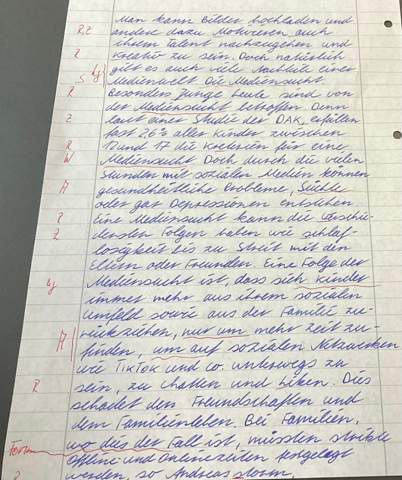 Man kann Bilder hochladen und
R,Z andere dazu Motivieren auch
ihrem Talent nachzugehen und
R Kreativ zu sein. Doch natürlich
gibt es auch viele Nachteile einer
Medienwelt. Die Mediensucht.
R Besonders junge heute sind von
der Mediensucht betroffen. Denn
Z laut einer Studie der DAK, erfüllen
fast 26% aller Kinder zwischen
R 12 und 17 die Kreterien für eine
W Mediensucht. Doch durch die vielen
Stunden mit sozialen Medien können
A gesundheitliche Probleme, Süchte
oder gar Depressionen entstehen.
R Eine Mediensucht kann die verschie-
Z densten Folgen haben wie schlaf-
losigkeit bis zu Streit mit den
Eltern oder Freunden. Eine Folge der
Mediensucht ist, dass sich Kinder
immer mehr aus ihrem sozialen
Umfeld sowie aus der Familie zu-
A rückziehen, nur um mehr Zeit zu
finden, um auf sozialen Netzwerken
wie TikTok und co. unterwegs zu
R sein, zu chatten und liken. Dies
schadet den Freundschaften und
dem Familienleben. Bei Familien,
Form wo dies der Fall ist, müssten strikte
Offline- und Onlinezeiten festgelegt
werden, so Andreas Storm,